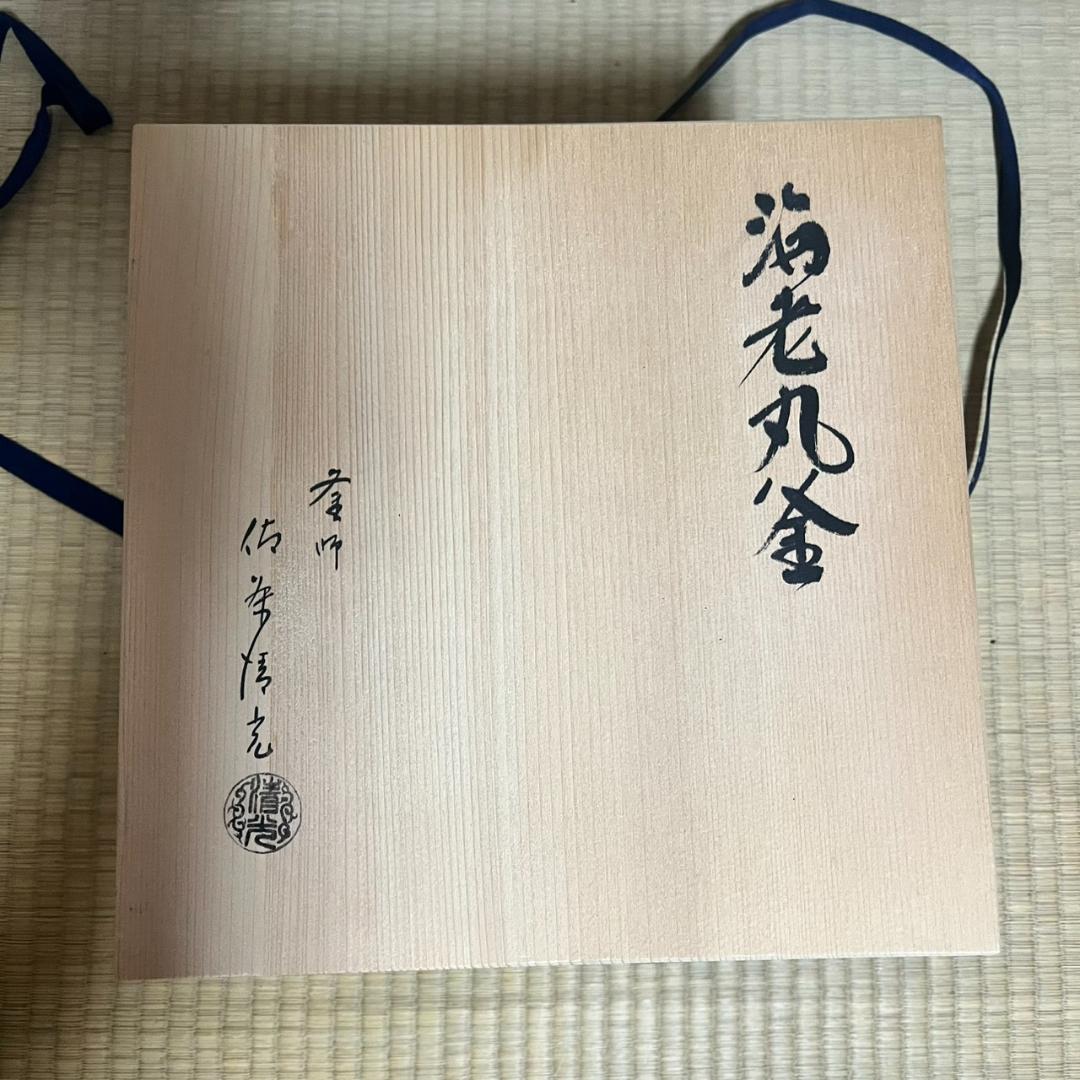 海老丸釜
釜師
佐藤清光
清光